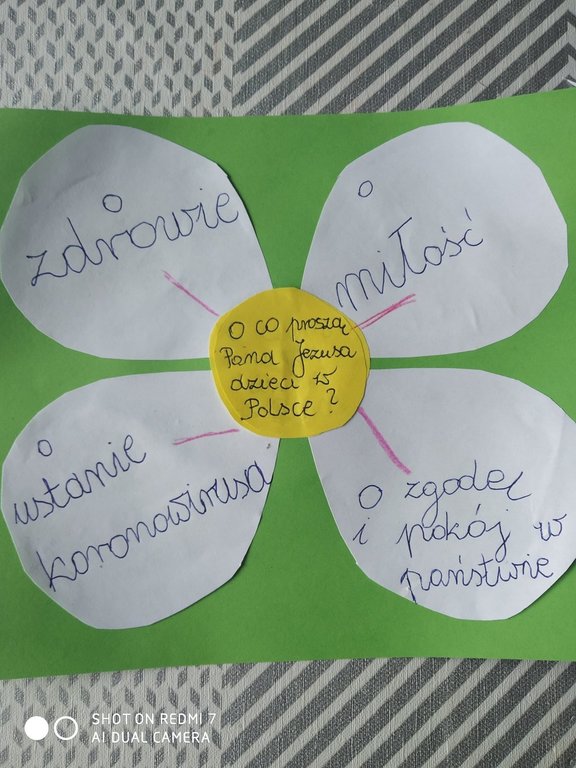 O co proszą
Pana Jezusa
dzieci w
Polsce?
o
zdrowie
o
miłość
o
ustanie
koronawirusa
o zgodę
i pokój w
państwie
SHOT ON REDMI 7
AI DUAL CAMERA